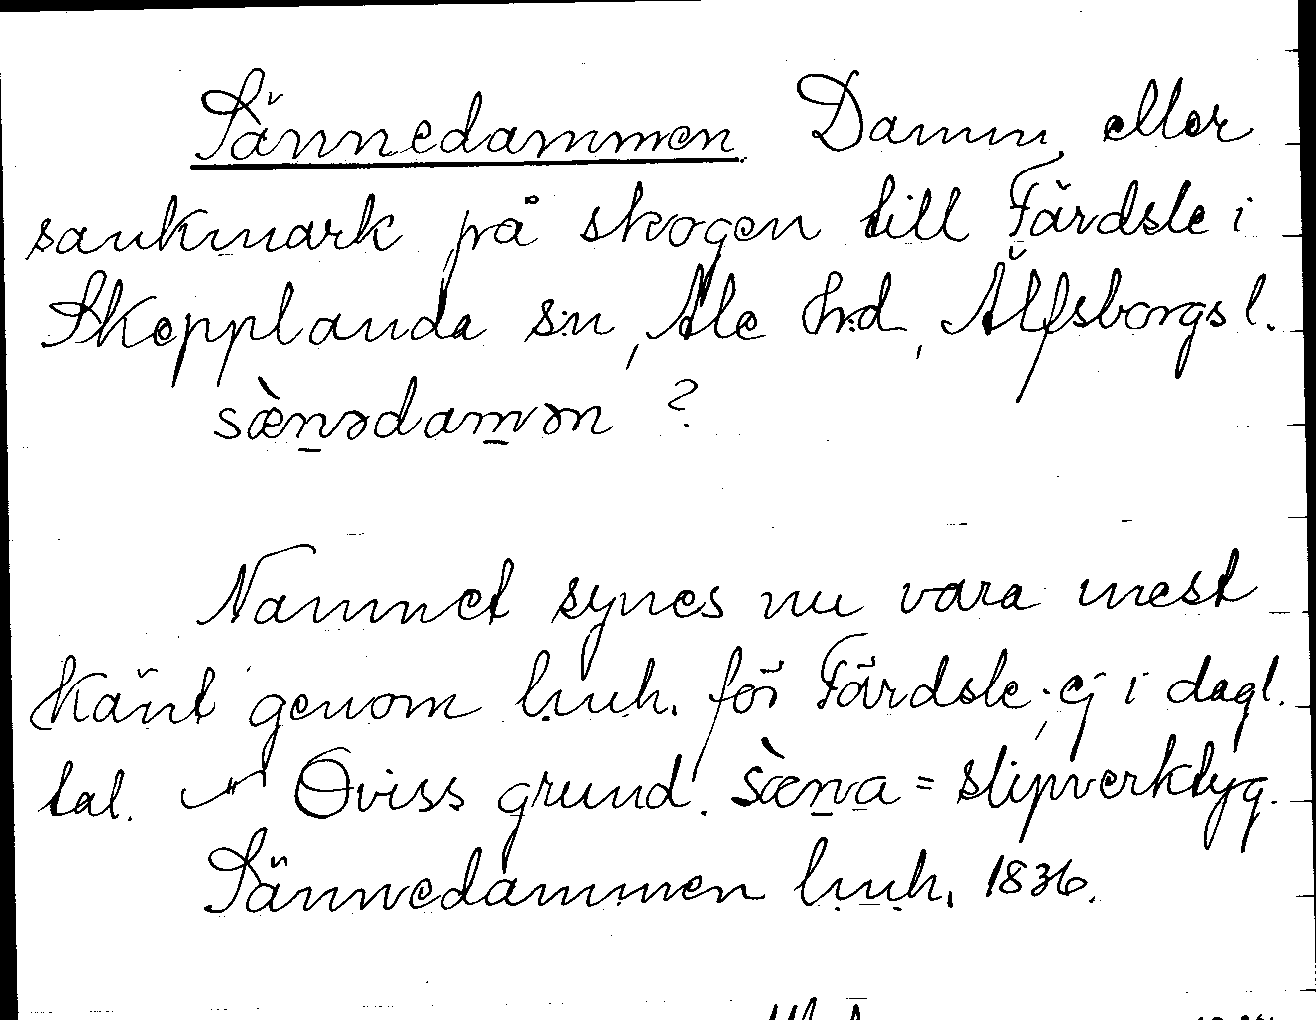 Sännedammen Damm eller
sankmark på skogen till Färdsle i
Skepplanda s:n, Ale h:d, Älfsborgs l.
sæ̀n̲ədam̲ən ?
Namnet synes nu vara mest
känt genom l.m.h. för Färdsle; ej i dagl.
tal. Oviss grund. sæ̀n̲a = slipverktyg.
Sännedammen l.m.h. 1836.